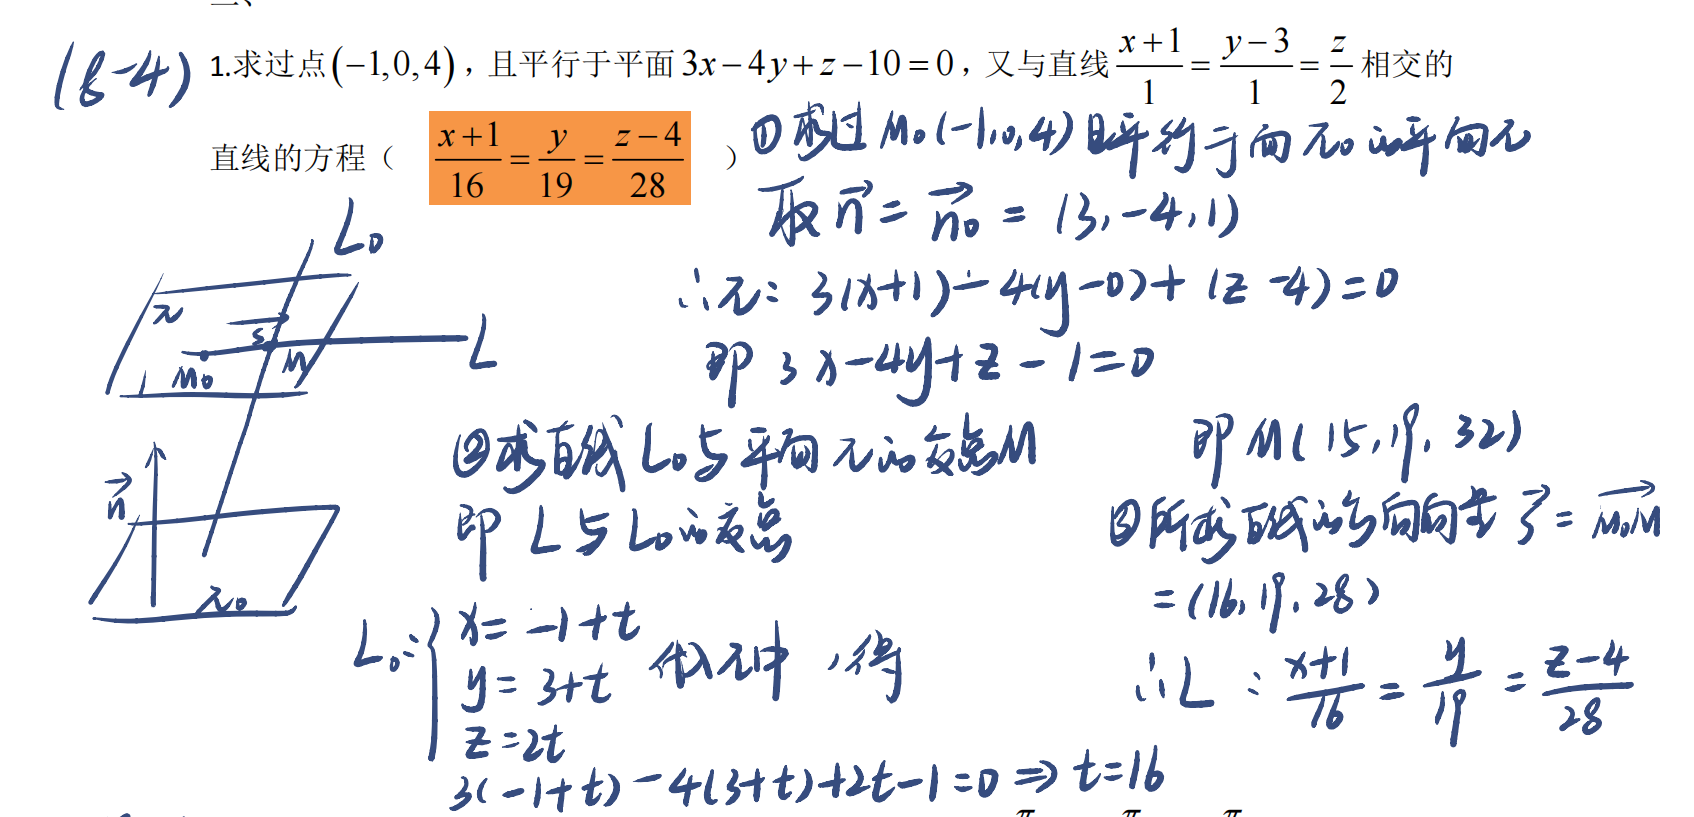 (8-4) 1.求过点(−1,0,4)，且平行于平面3x−4y+z−10=0，又与直线(x+1)/1=(y−3)/1=z/2相交的
直线的方程（ (x+1)/16=y/19=(z−4)/28 ）
①求过M₀(-1,0,4)且平行于面π₀的平面π
取n⃗=n₀⃗=(3,-4,1)
∴π: 3(x+1)-4(y-0)+(z-4)=0
即 3x-4y+z-1=0
L₀
π
s
M₀
M
L
n⃗
π₀
②求直线L₀与平面π的交点M
即 L与L₀的交点
L₀: { x=-1+t
y=3+t 代入π中，得
z=2t
3(-1+t)-4(3+t)+2t-1=0 ⇒ t=16
即M(15,19,32)
③所求直线的方向向量 s⃗=M₀M⃗
=(16,19,28)
∴L: (x+1)/16=y/19=(z-4)/28